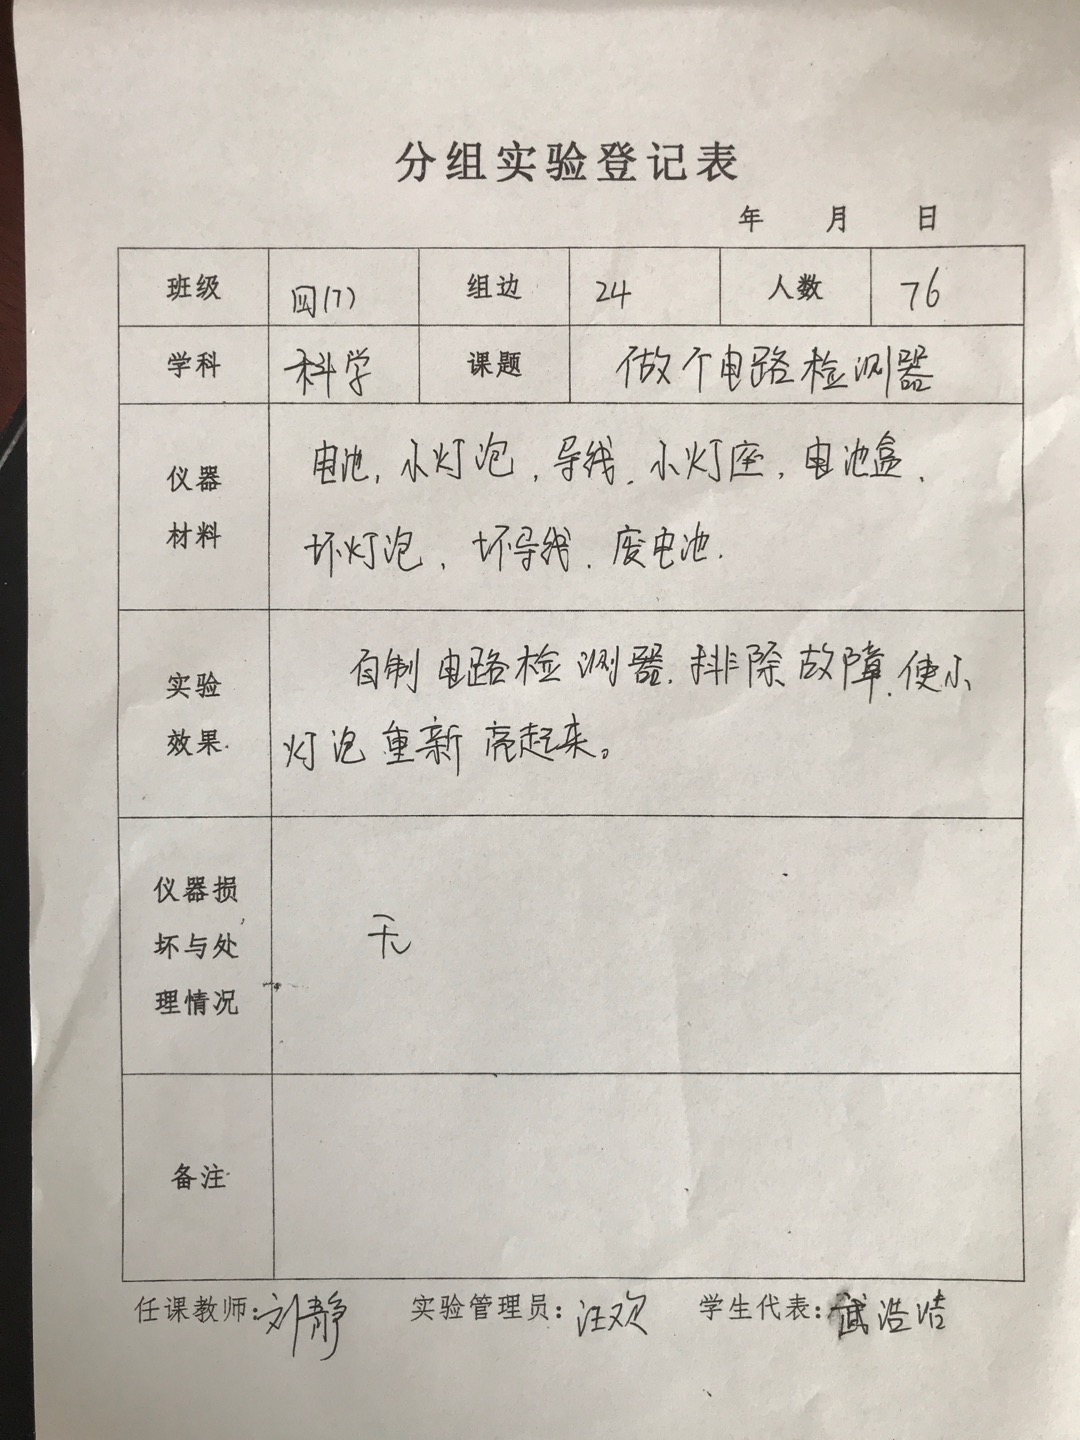 分组实验登记表
年 月 日
班级 四(7) 组边 24 人数 76
学科 科学 课题 做个电路检测器
仪器
材料
电池,小灯泡,导线,小灯座,电池盒,
坏灯泡,坏导线,废电池.
实验
效果.
自制电路检测器,排除故障,使小
灯泡重新亮起来。
仪器损
坏与处
理情况
无
备注
任课教师:刘静 实验管理员:汪欢 学生代表:武浩洁